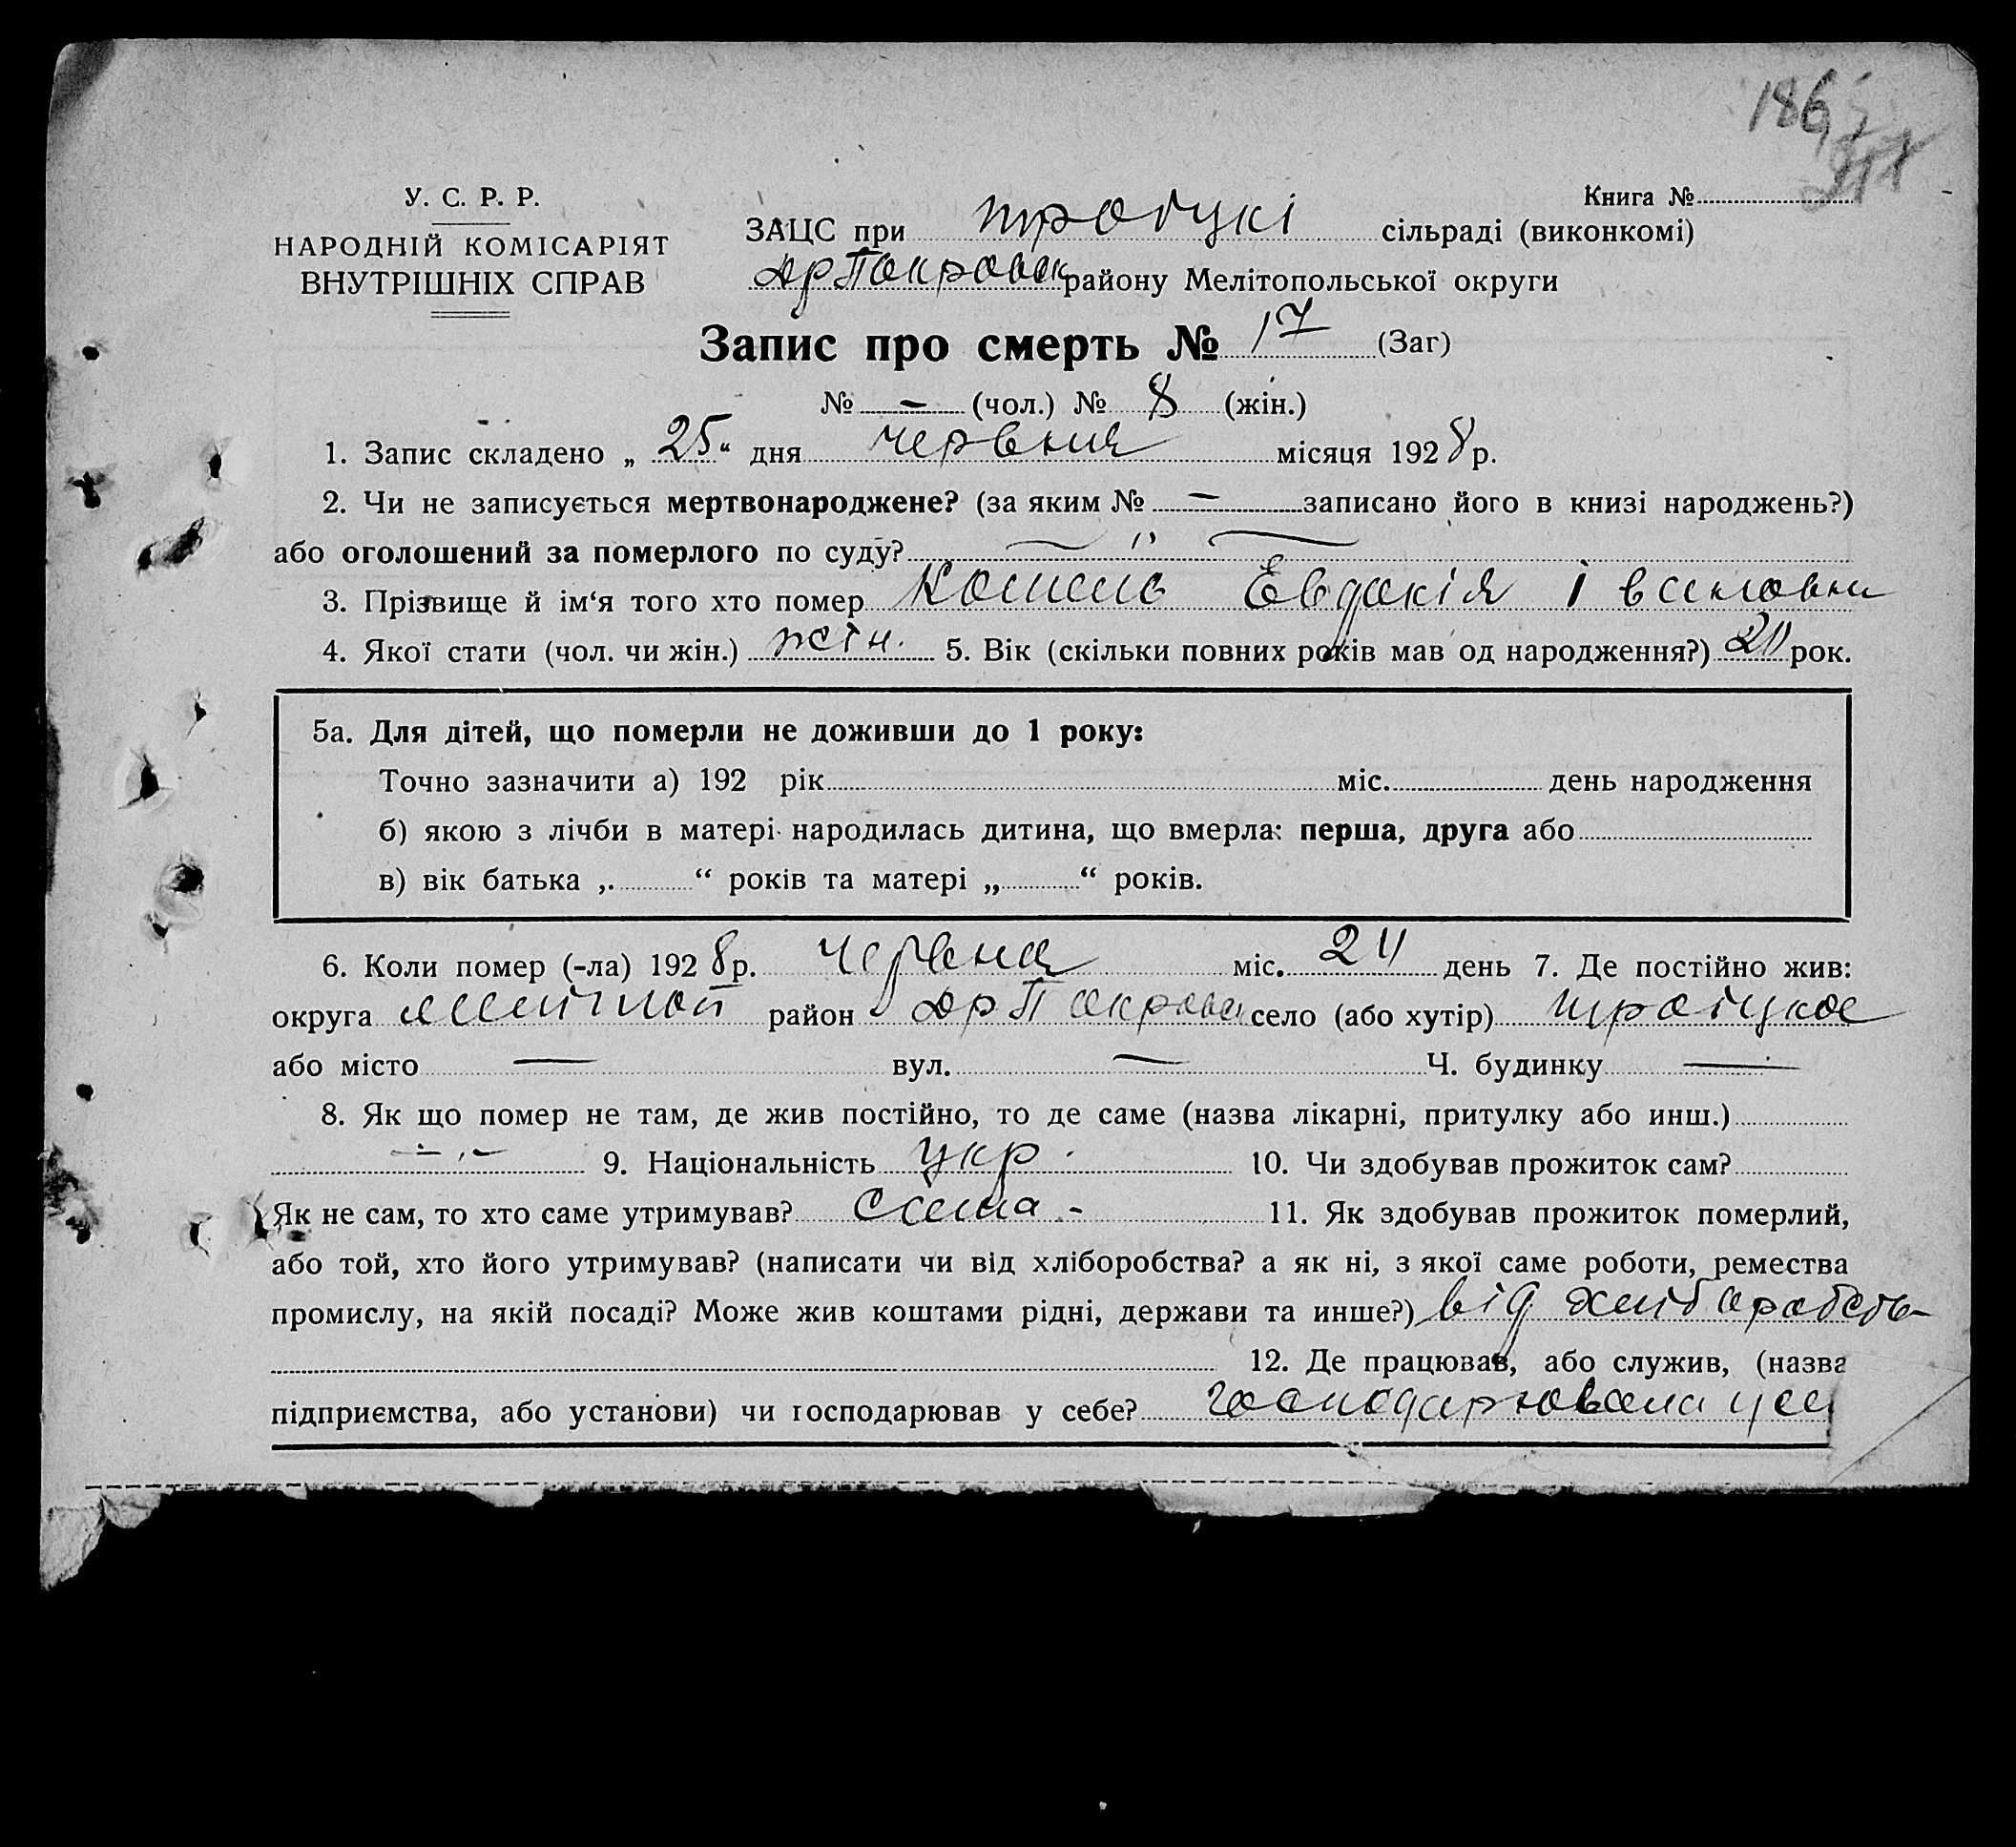 186
У. С. Р. Р.
Книга №
НАРОДНІЙ КОМІСАРІЯТ
ВНУТРІШНІХ СПРАВ
ЗАЦС при троїцкі сільраді (виконкомі)
района Мелітопольської округи
Запис про смерть № 17 (Заг)
№ — (чол.) № 8 (жін.)
1. Запис складено „ 25 “ дня червня місяця 1928 р.
2. Чи не записується мертвонароджене? (за яким № — записано його в книзі народжень?)
або оголошений за померлого по суду? — " —
3. Прізвище й ім‘я того хто помер Євдокія
4. Якої стати (чол. чи жін.) жін. 5. Вік (скільки повних років мав од народження?) рок.
5а. Для дітей, що померли не доживши до 1 року:
Точно зазначити а) 192 рік міс. день народження
б) якою з лічби в матері народилась дитина, що вмерла: перша, друга або
в) вік батька „ “ років та матері „ “ років.
6. Коли помер (-ла) 1928 р. червня міс. 24 день 7. Де постійно жив:
округа район село (або хутір) троїцкое
або місто — вул. — Ч. будинку —
8. Як що помер не там, де жив постійно, то де саме (назва лікарні, притулку або инш.)
— " — 9. Національність укр. 10. Чи здобував прожиток сам?
Як не сам, то хто саме утримував? сама - 11. Як здобував прожиток померлий,
або той, хто його утримував? (написати чи від хліборобства? а як ні, з якої саме роботи, ремества
промислу, на якій посаді? Може жив коштами рідні, держави та инше?) від
12. Де працював, або служив, (назва
підприємства, або установи) чи господарював у себе? господарювала у себ